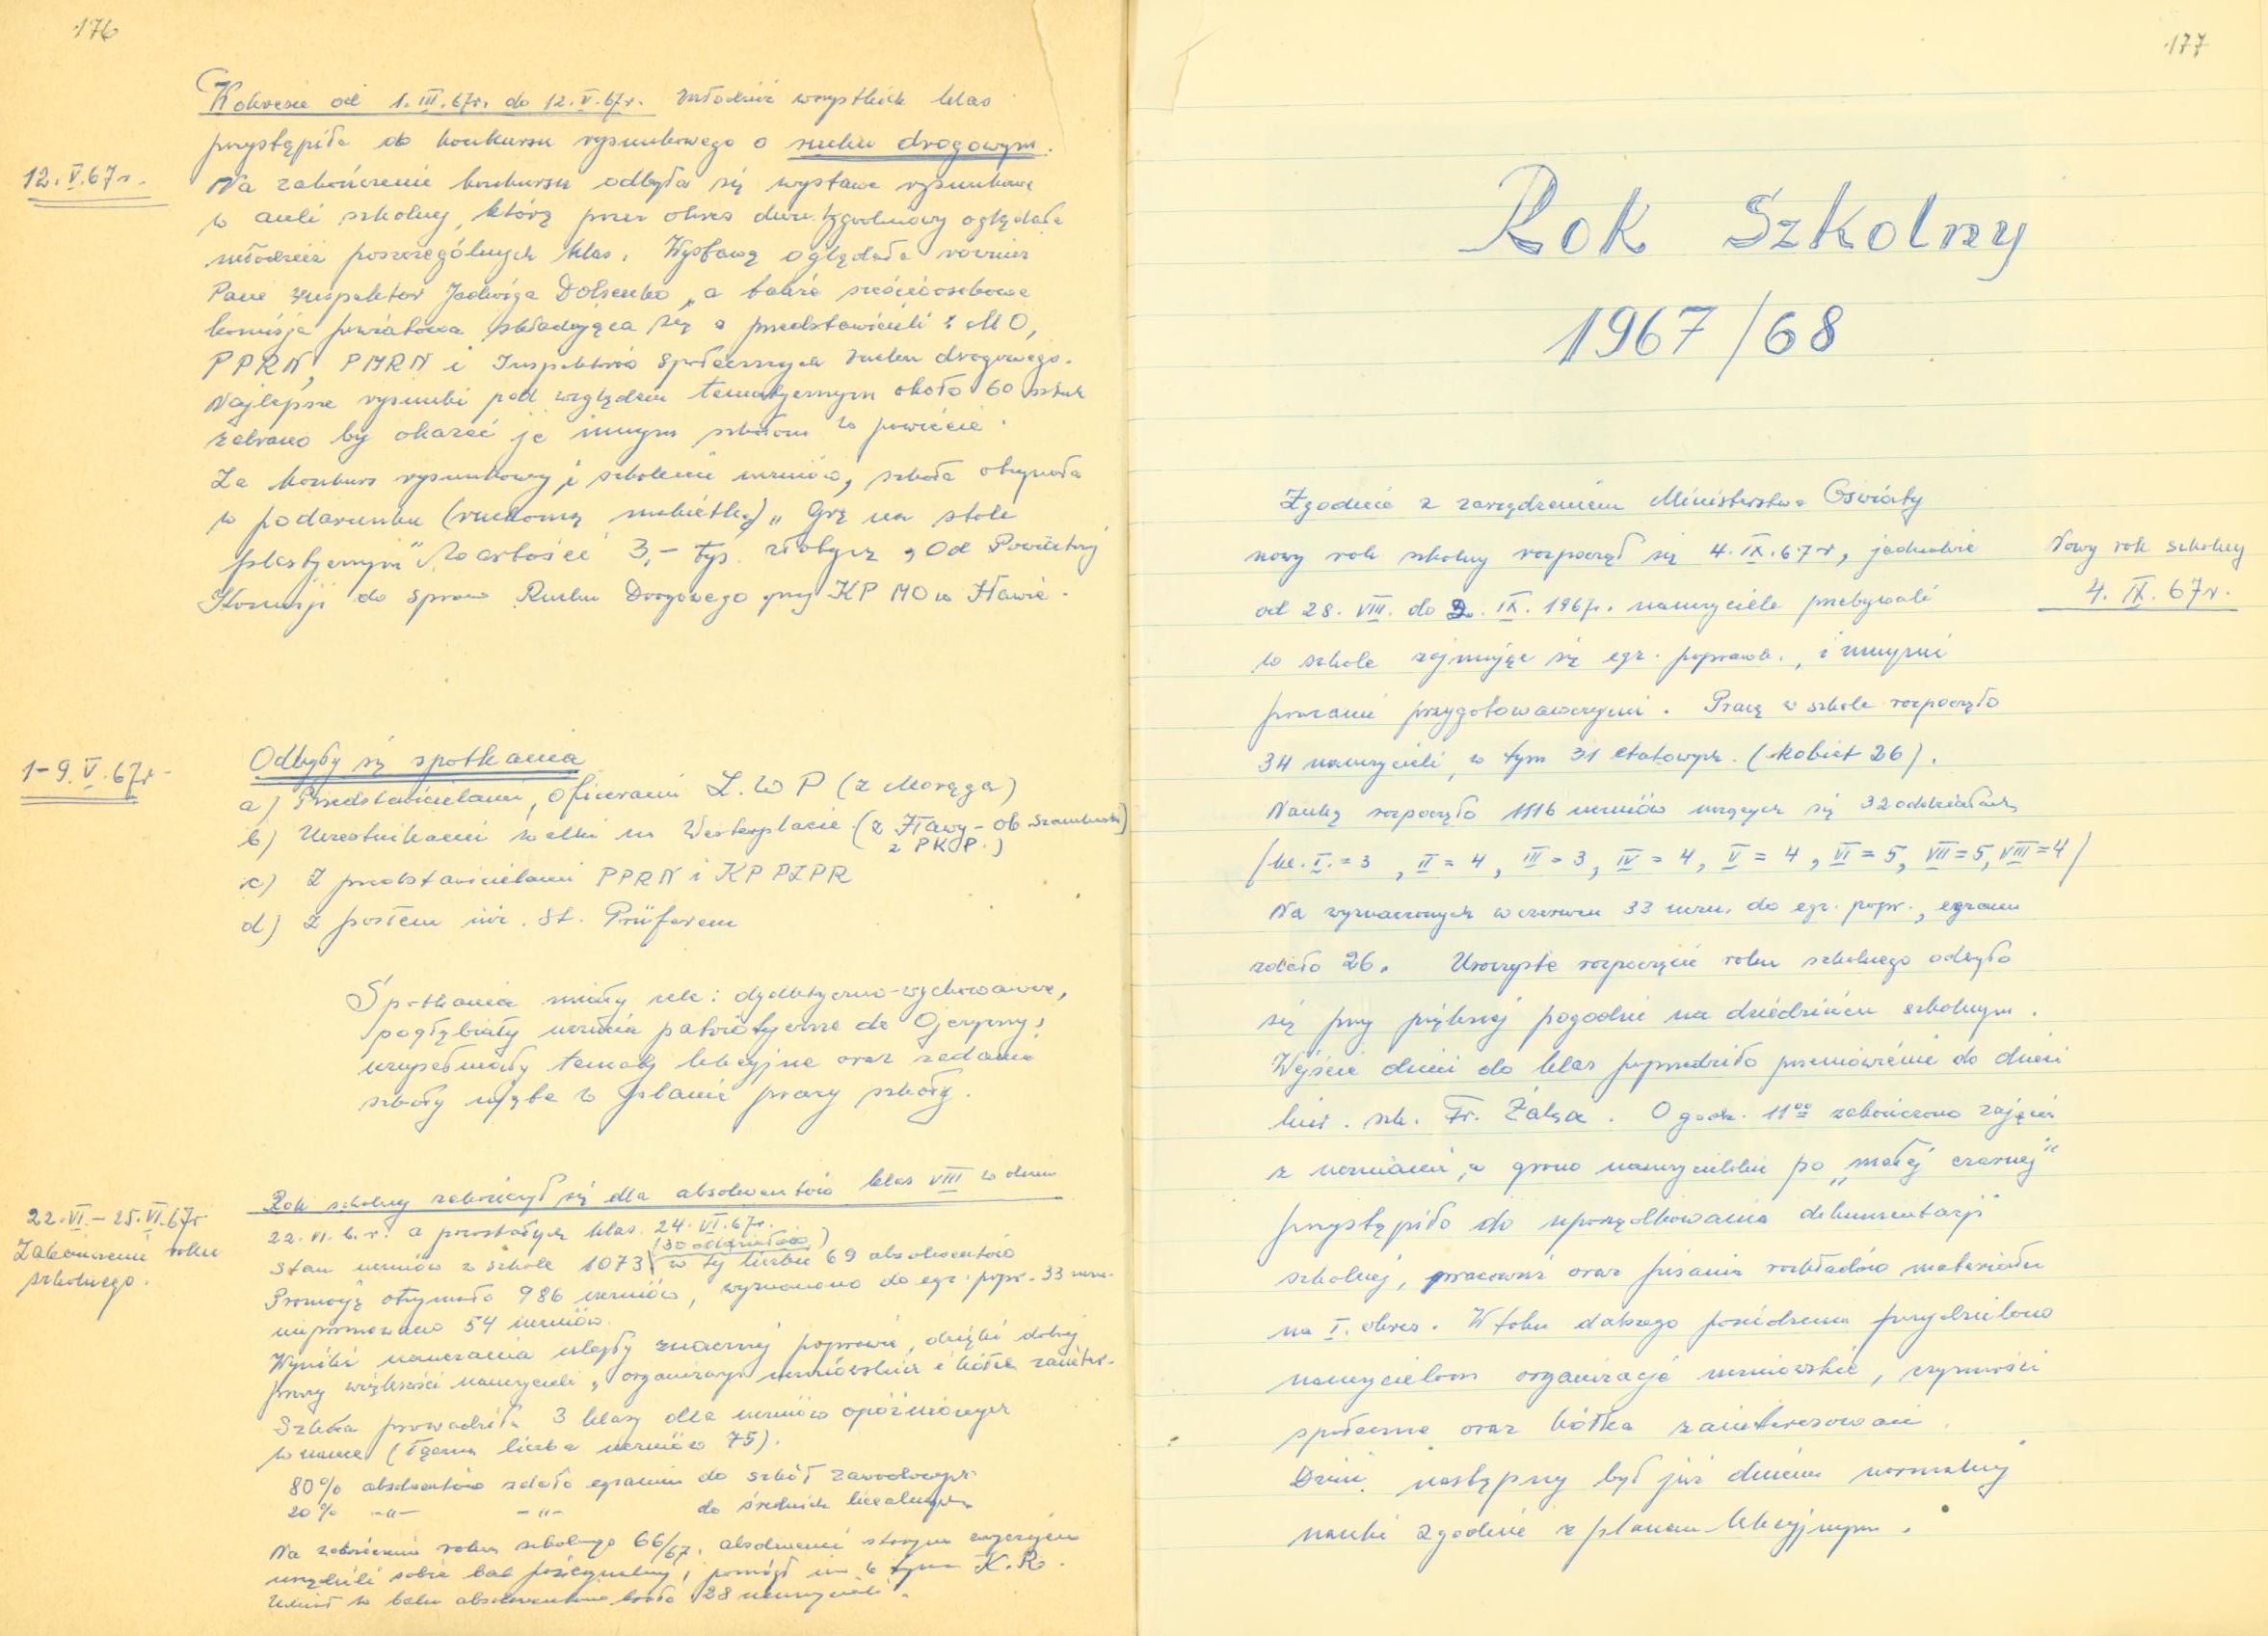 176
W okresie od 1.III.67r. do 12.V.67r. młodzież wszystkich klas
przystąpiła do konkursu rysunkowego o ruchu drogowym.
12.V.67r.
Na zakończenie konkursu odbyła się wystawa rysunkowa
w auli szkolnej, którą przez okres dwu tygodniowy oglądała
młodzież poszczególnych klas. Wystawę oglądała również
Pani inspektor Jadwiga, a także sześcioosobowa
komisja powiatowa składająca się z przedstawicieli z MO,
PPRN, PMRN i Inspektorów społecznych ruchu drogowego.
Najlepsze rysunki pod względem tematycznym około 60 sztuk
zebrano by okazać je innym szkołom w powiecie.
Za konkurs rysunkowy i szkolenie uczniów, szkoła otrzymała
w podarunku (ruchomą makietkę) „Grę na stole
plastycznym" wartości 3,- tys. złotych, od Powiatowej
Komisji do spraw Ruchu Drogowego przy KP MO w Iławie.
1-9.V.67r.
Odbyły się spotkania
a) Przedstawicielami, oficerami L.W P (z Morąga)
b) Uczestnikami walki na Westerplacie (z Iławy - ob.
z PKP.)
c) Z przedstawicielami PPRN i KP PZPR
d) Z posłem inż. St. Prüferem
Spotkania miały cele: dydaktyczno-wychowawcze,
pogłębiały uczucia patriotyczne do Ojczyzny,
uzupełniały tematy lekcyjne oraz zadania
szkoły ujęte w planie pracy szkoły.
22.VI - 25.VI.67r.
Zakończenie roku
szkolnego.
Rok szkolny zakończył się dla absolwentów klas VIII w dniu
22.VI.b.r. a pozostałych klas 24.VI.67r.
(30 oddziałów)
Stan uczniów w szkole 1073 w tej liczbie 69 absolwentów
Promocję otrzymało 986 uczniów, wyznaczono do egz. popr. 33 ucz.
niepromowano 54 uczniów.
Wyniki nauczania uległy znacznej poprawie, dzięki dobrej
pracy większości nauczycieli, organizacji uczniowskich i kółek zainter.
Szkoła prowadziła 3 klasy dla uczniów opóźnionych
w nauce (łączna liczba uczniów 75).
80% absolwentów zdało egzamin do szkół zawodowych
20% -„- -„- do średnich licealnych
Na zakończenie roku szkolnego 66/67, absolwenci starym zwyczajem
urządzili sobie bal pożegnalny, pomógł im w tym K.R.
Udział w balu absolwentów brało 28 nauczycieli.
177
Rok Szkolny
1967/68
Zgodnie z zarządzeniem Ministerstwa Oświaty
nowy rok szkolny rozpoczął się 4.IX.67r, jednakże
Nowy rok szkolny
4.IX.67r.
od 28.VIII. do 2.IX.1967r. nauczyciele przebywali
w szkole zajmując się egz. popraw., i innymi
pracami przygotowawczymi. Pracę w szkole rozpoczęło
34 nauczycieli, w tym 31 etatowych. (kobiet 26).
Naukę rozpoczęło 1116 uczniów uczących się 32 oddziałach
/kl. I. = 3, II = 4, III = 3, IV = 4, V = 4, VI = 5, VII = 5, VIII = 4/
Na wyznaczonych w czerwcu 33 uczn. do egz. popr., egzamin
zdało 26. Uroczyste rozpoczęcie roku szkolnego odbyło
się przy pięknej pogodzie na dziedzińcu szkolnym.
Wejście dzieci do klas poprzedziło przemówienie do dzieci
kier. szk. Fr. Żaksa. O godz. 11oo zakończono zajęcia
z uczniami, a grono nauczycielskie po „małej czarnej"
przystąpiło do uporządkowania dokumentacji
szkolnej, pracowni oraz pisania rozkładów materiału
na I. okres. W toku dalszego posiedzenia przydzielono
nauczycielom organizacje uczniowskie, czynności
społeczne oraz kółka zainteresowań.
Dzień następny był już dniem normalnej
nauki zgodnie z planem lekcyjnym.